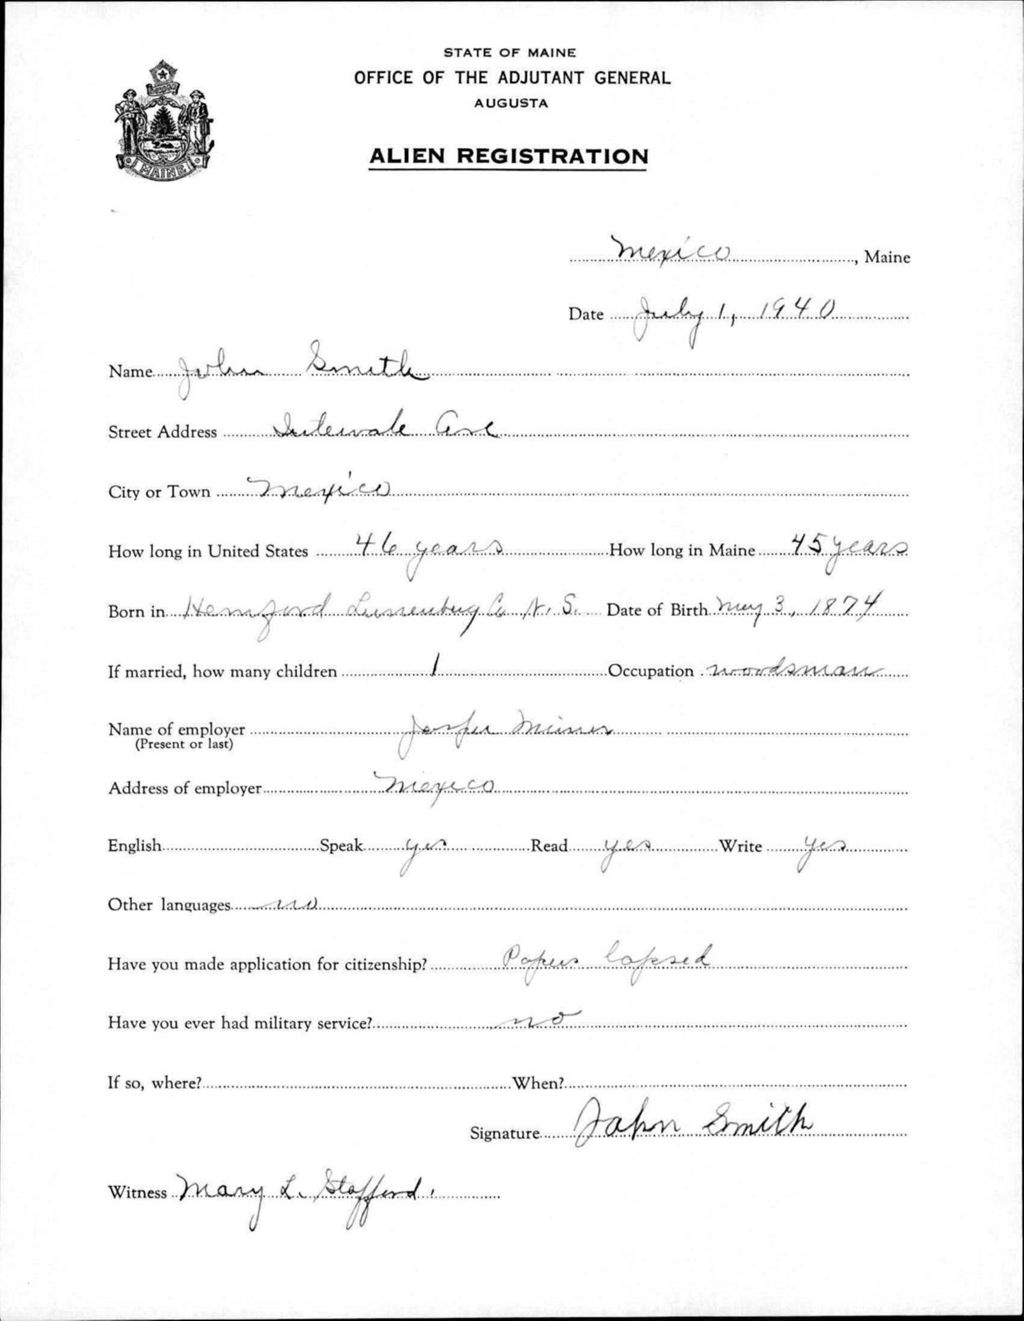 STATE OF MAINE
OFFICE OF THE ADJUTANT GENERAL
AUGUSTA
ALIEN REGISTRATION
MAINE
Mexico, Maine
Date July 1, 1940
Name John Smith
Street Address Intervale Ave
City or Town Mexico
How long in United States 46 years How long in Maine 45 years
Born in Hemford Lunenburg Co N. S. Date of Birth May 3, 1874
If married, how many children 1 Occupation woodsman
Name of employer Jasper
(Present or last)
Address of employer Mexico
English Speak yes Read yes Write yes
Other languages no
Have you made application for citizenship? Papers lapsed
Have you ever had military service? no
If so, where? When?
Signature John Smith
Witness Mary L. Stafford.